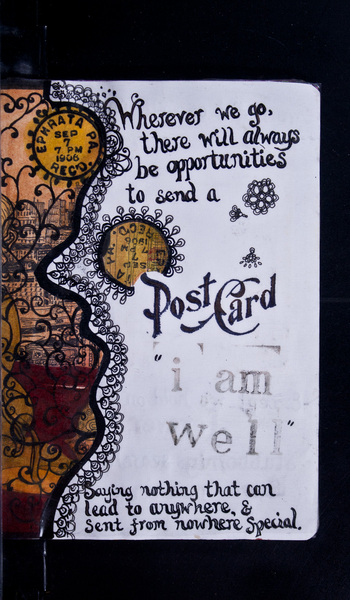 EPHRATA PA.
SEP
7
7 PM
1906
REC'D.
Wherever we go,
there will always
be opportunities
to send a
Post Card
"i am
well"
Saying nothing that can
lead to anywhere, &
sent from nowhere special.